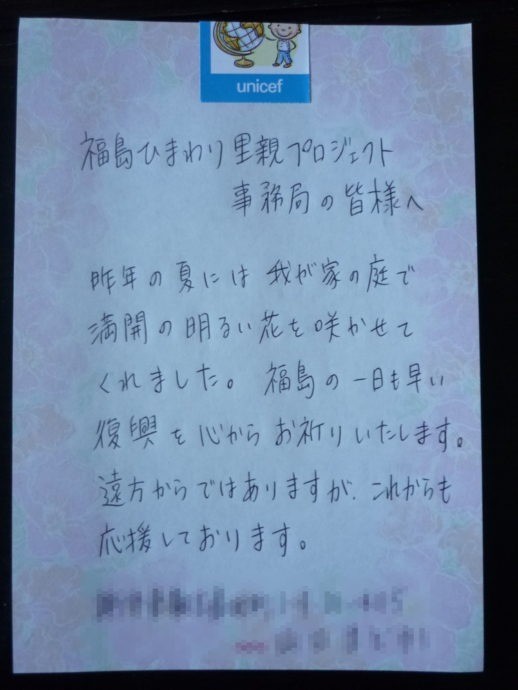 unicef
福島ひまわり里親プロジェクト
事務局の皆様へ
昨年の夏には 我が家の庭で
満開の明るい花を咲かせて
くれました。福島の一日も早い
復興を心からお祈りいたします。
遠方からではありますが、これからも
応援しております。